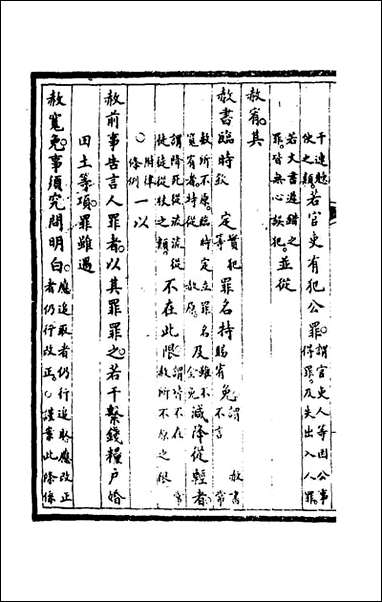 干連聽使之類若官吏有犯公罪謂官吏人等因公事得罪及失出入人罪
若文書遲錯之罪皆無心故犯並從
赦宥其
赦書臨時欽定實犯等罪名特賜宥免謂赦書不言常
赦所不原臨時定立罪名寬宥者特從赦原及雖不全免減降從輕者
謂降死從流流從徒徒從杖之類不在此限謂皆不在常赦所不原之限
○附律條例一以
赦前事告言人罪者以其罪罪之若干繫錢糧戶婚
田土等項罪雖遇
赦寬免事須究問明白應追取者仍行追取應改正者仍行改正○謹案此條係